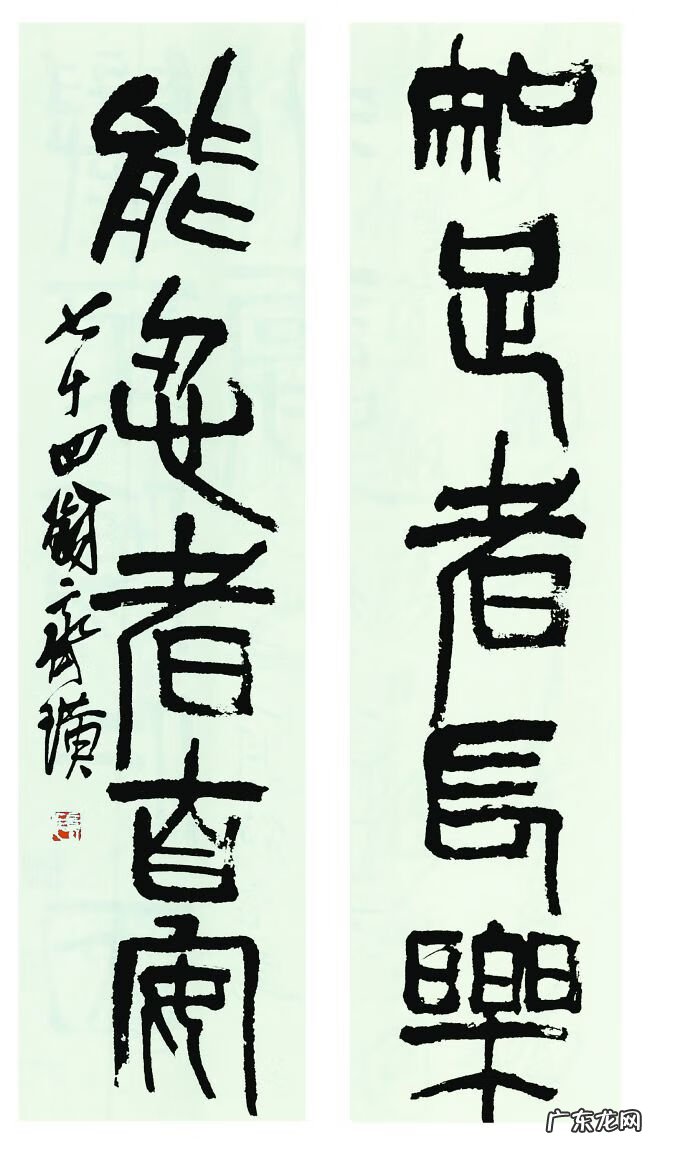 知足者長樂
能忍者自安
七十四 齊璜
广东龙网